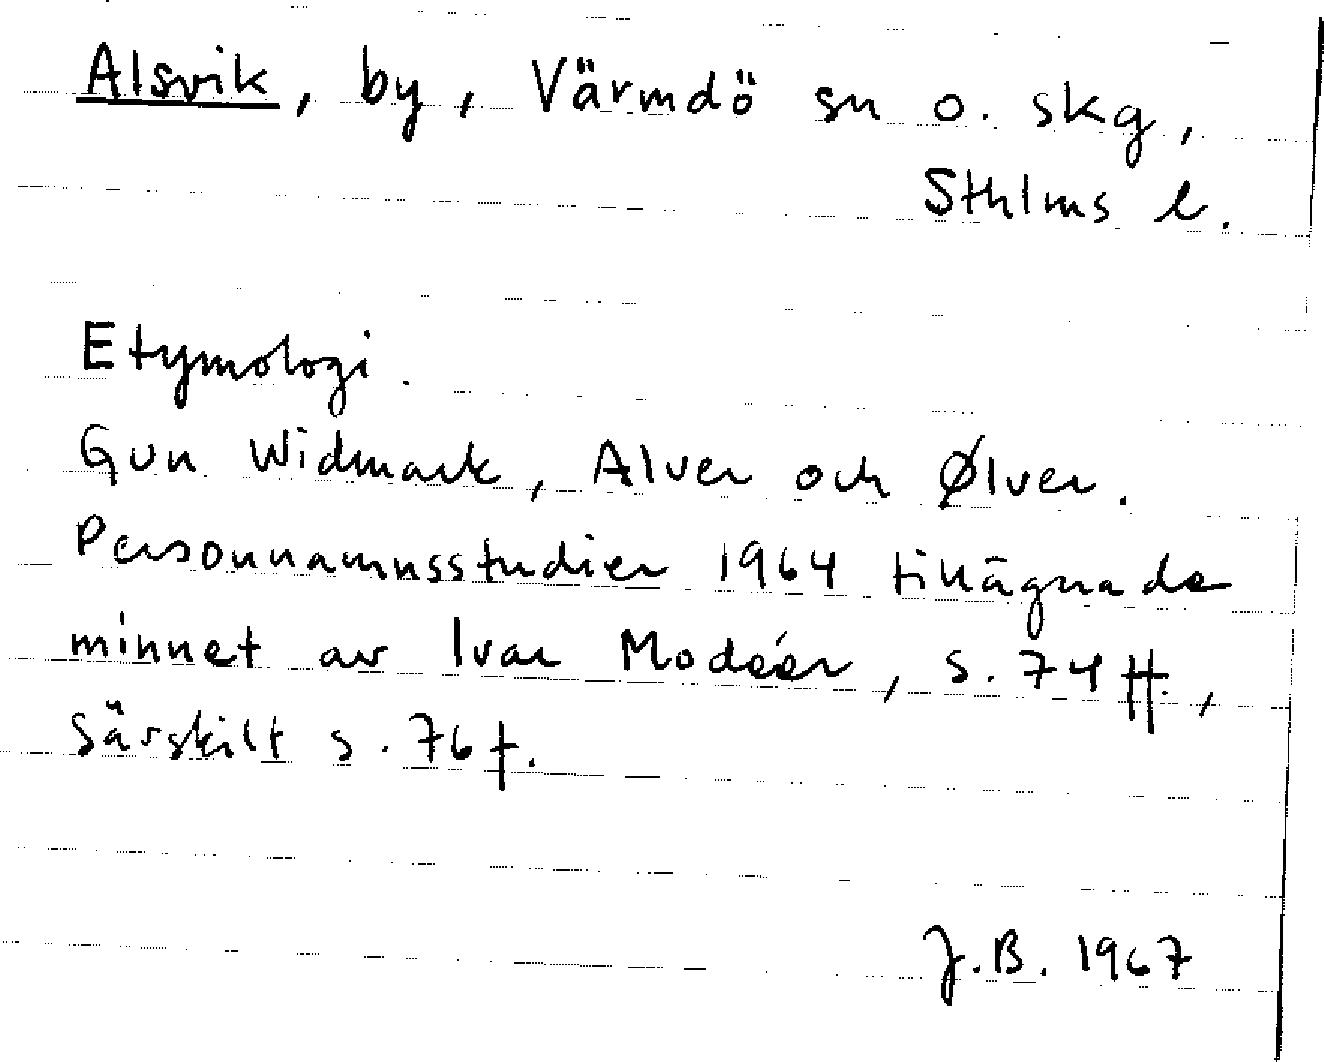 Alsvik, by, Värmdö sn o. skg,
Sthlms l.
Etymologi.
Gun Widmark, Alver och Ølver.
Personnamnsstudier 1964 tillägnade
minnet av Ivar Modéer, s. 74 ff.,
särskilt s. 76 f.
J.B. 1967